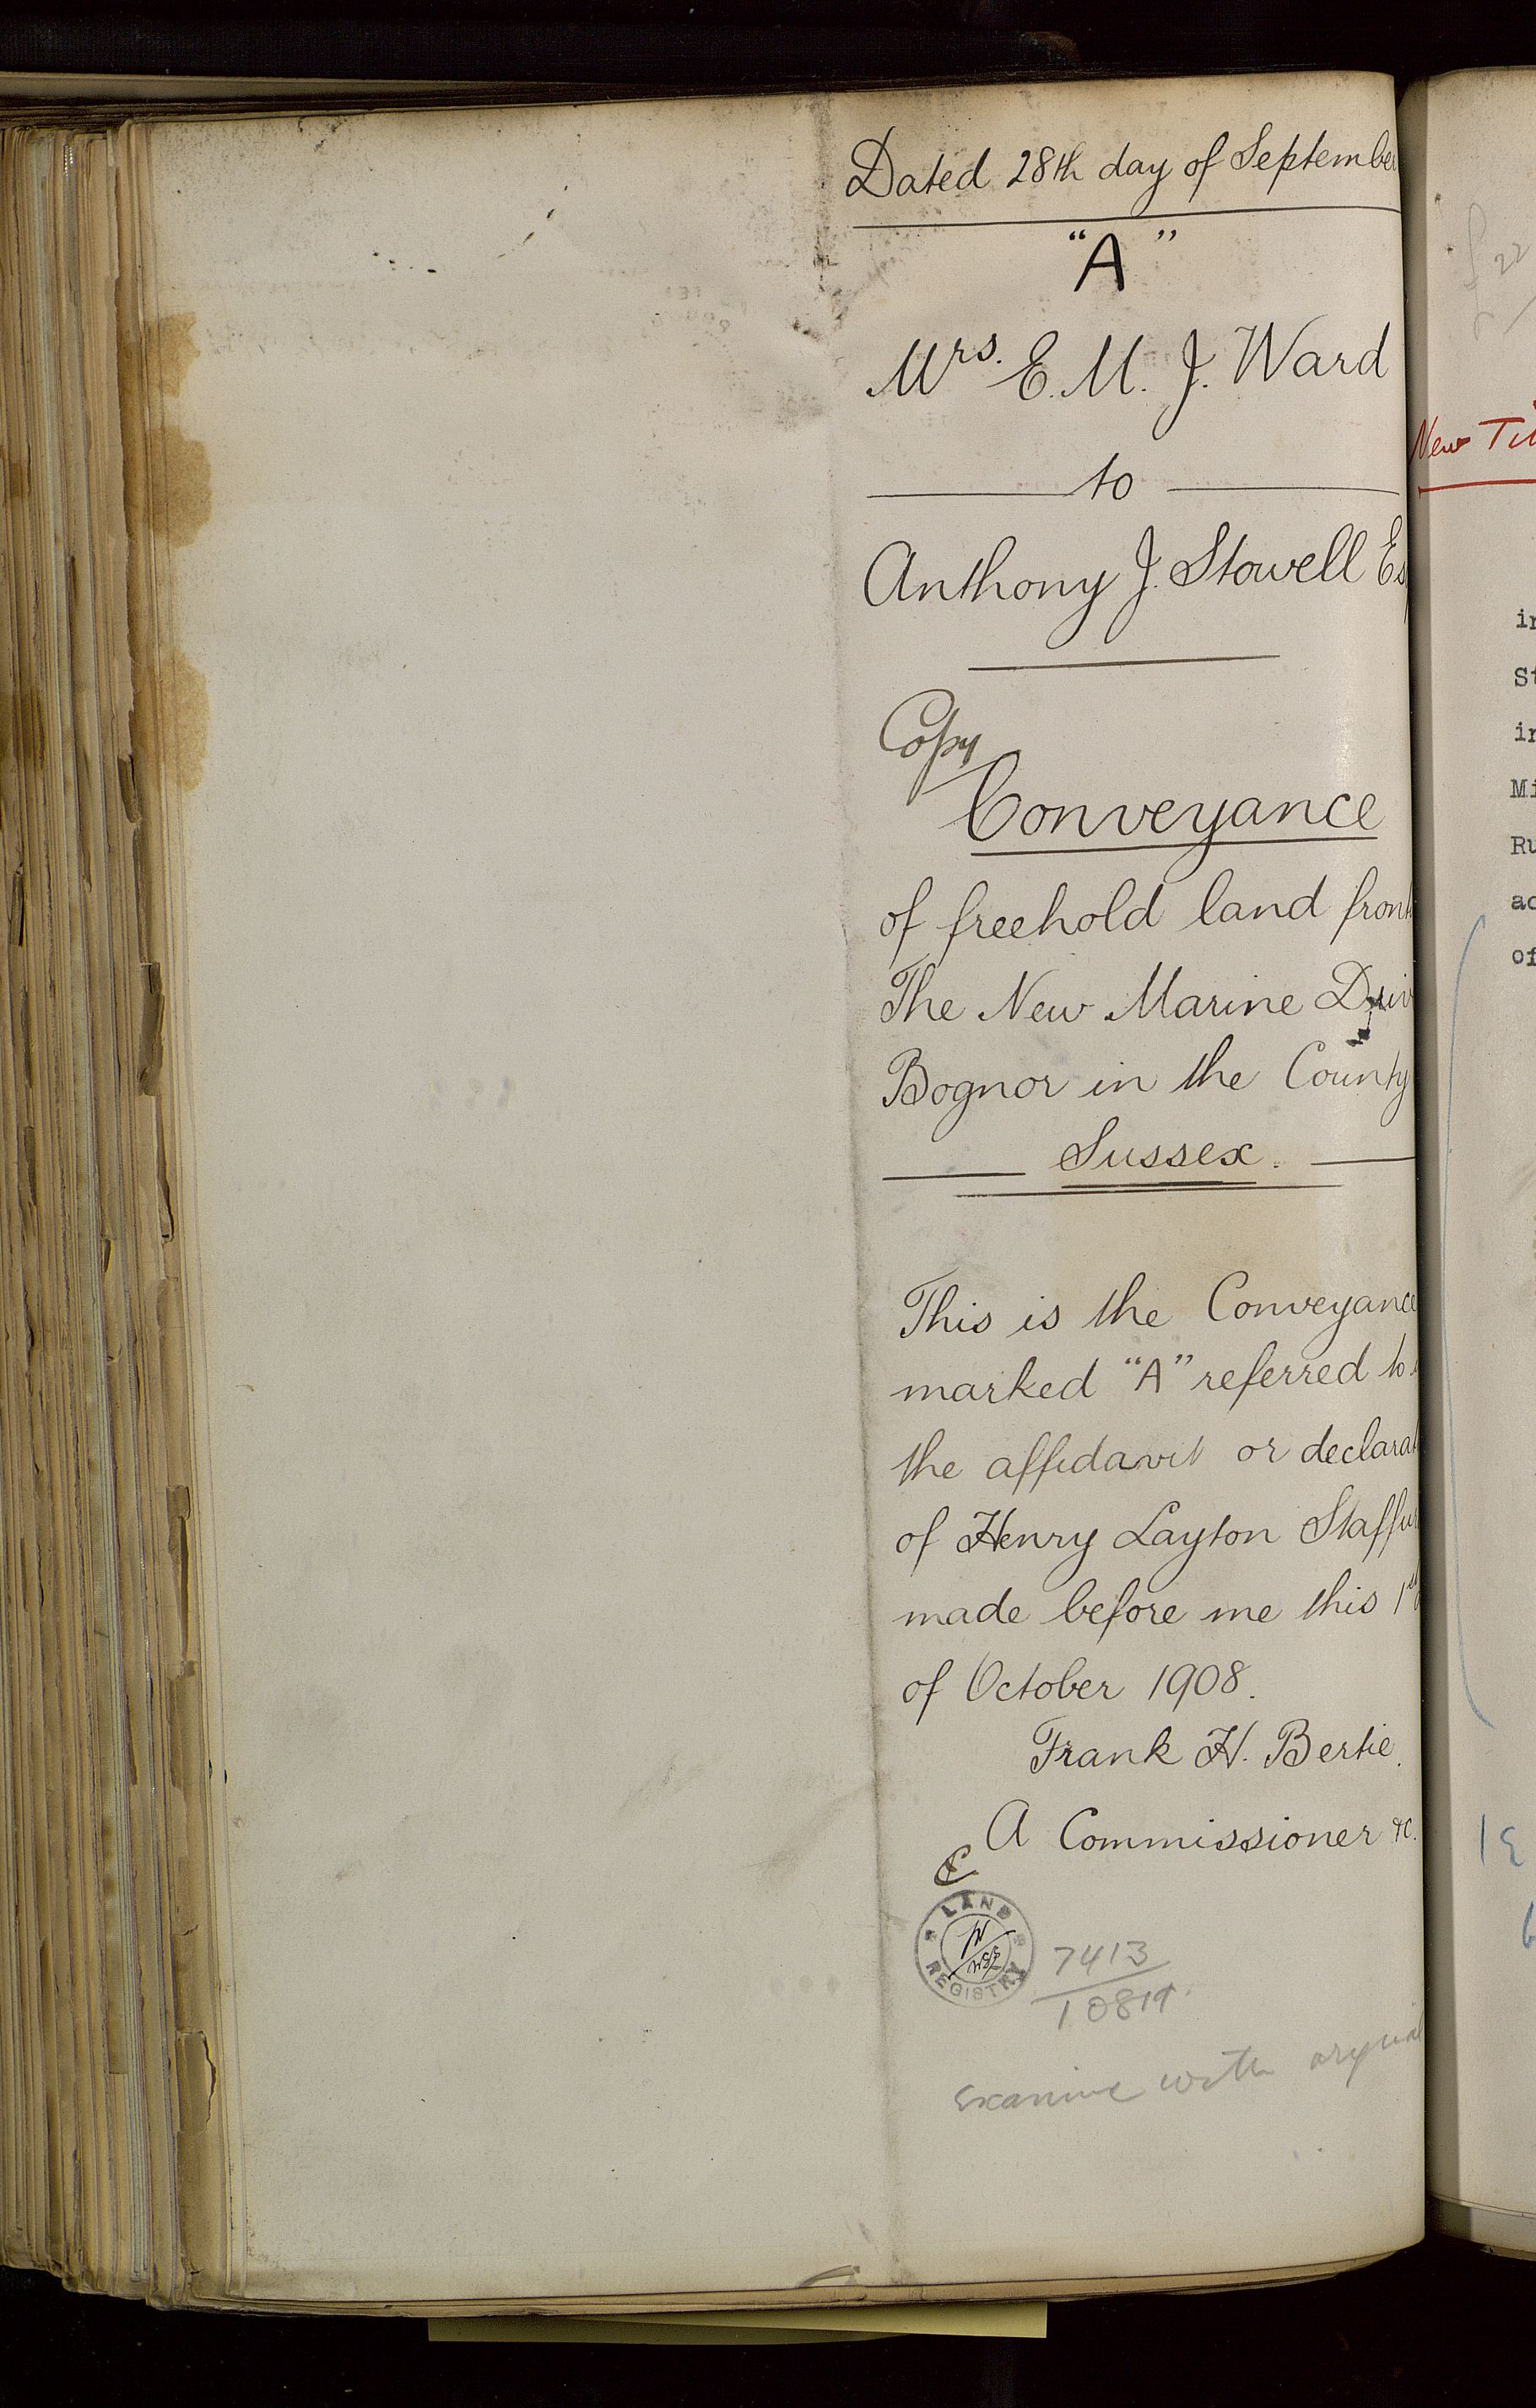 Dated 28th day of September
"A"
Mrs. E. M. J. Ward
to
Anthony J. Stowell Es
Copy
Conveyance
of freehold land front
The New Marine Driv
Bognor in the County
Sussex.
This is the Conveyance
marked "A" referred to
the affidavit or declarat
of Henry Layton Staffu
made before me this 1st
of October 1908.
Frank H. Bertie.
A Commissioner &c.
LAND REGISTRY
7413
10819
Examine with original
£22
New Tit
in
St
in
Mi
Ru
ac
of